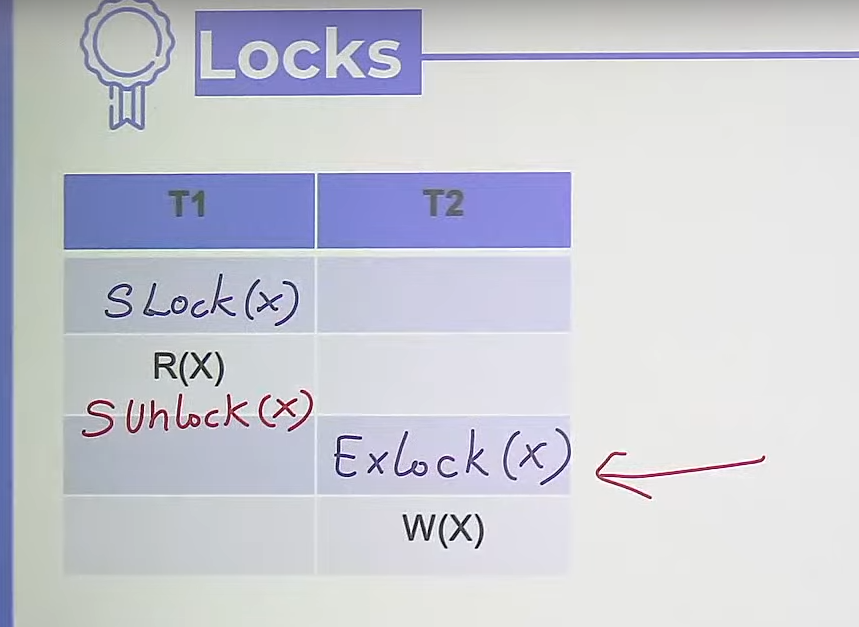 Locks
T1 T2
SLock(x)
R(X)
SUnlock(x)
Exlock(x)
W(X)